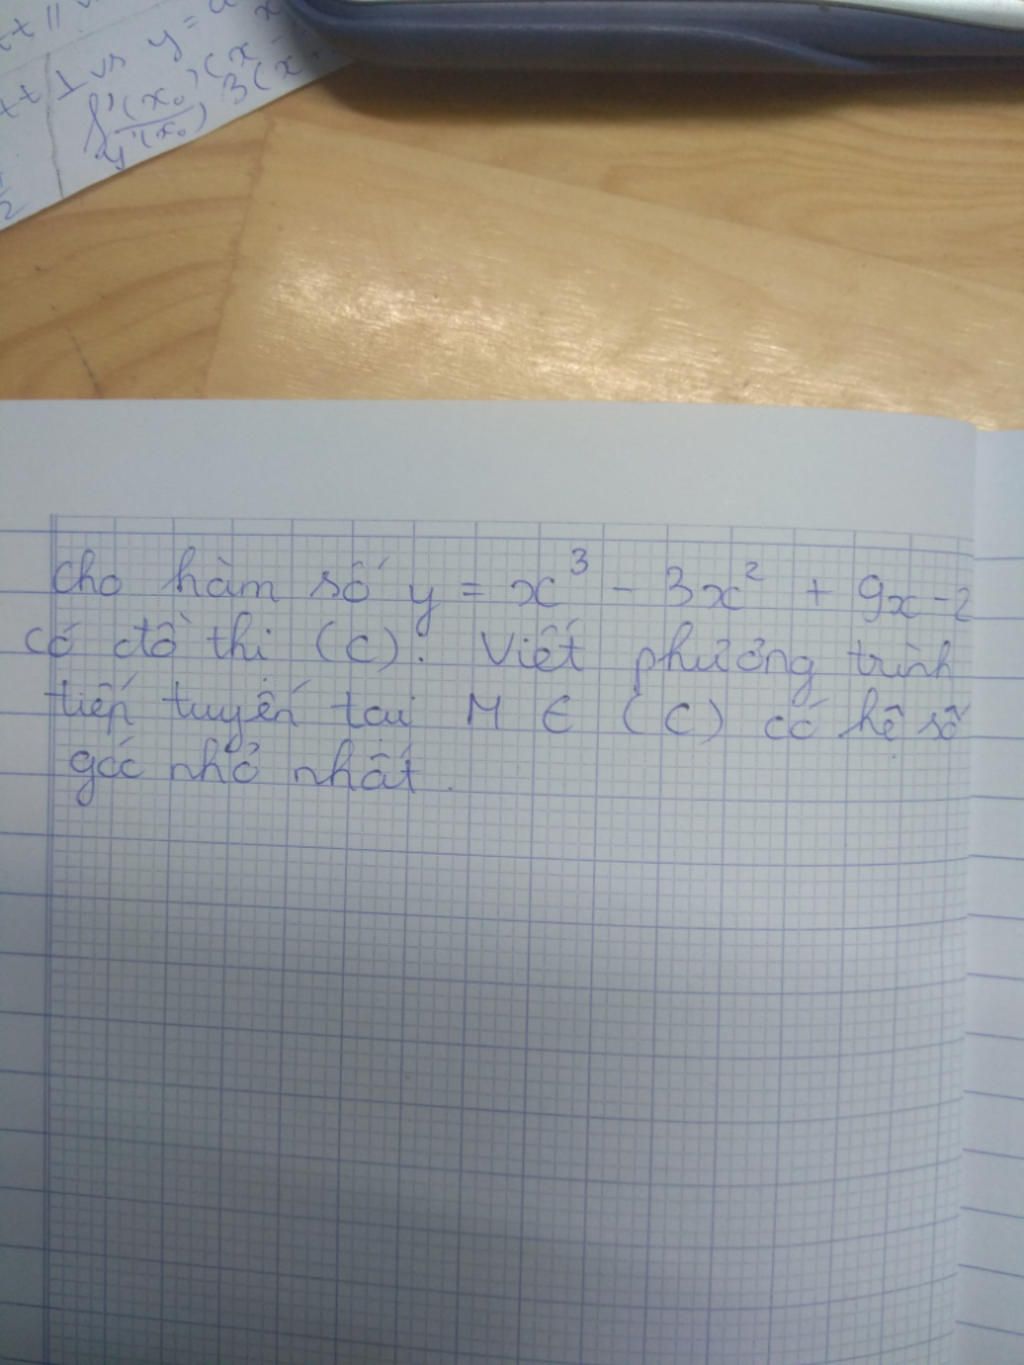 tt 1 vs y =
f'(x₀)(x
y'(x₀) 3(x
cho hàm số y = x³ - 3x² + 9x - 2
có đồ thị (C). Viết phương trình
tiếp tuyến tại M ∈ (C) có hệ số
góc nhỏ nhất.